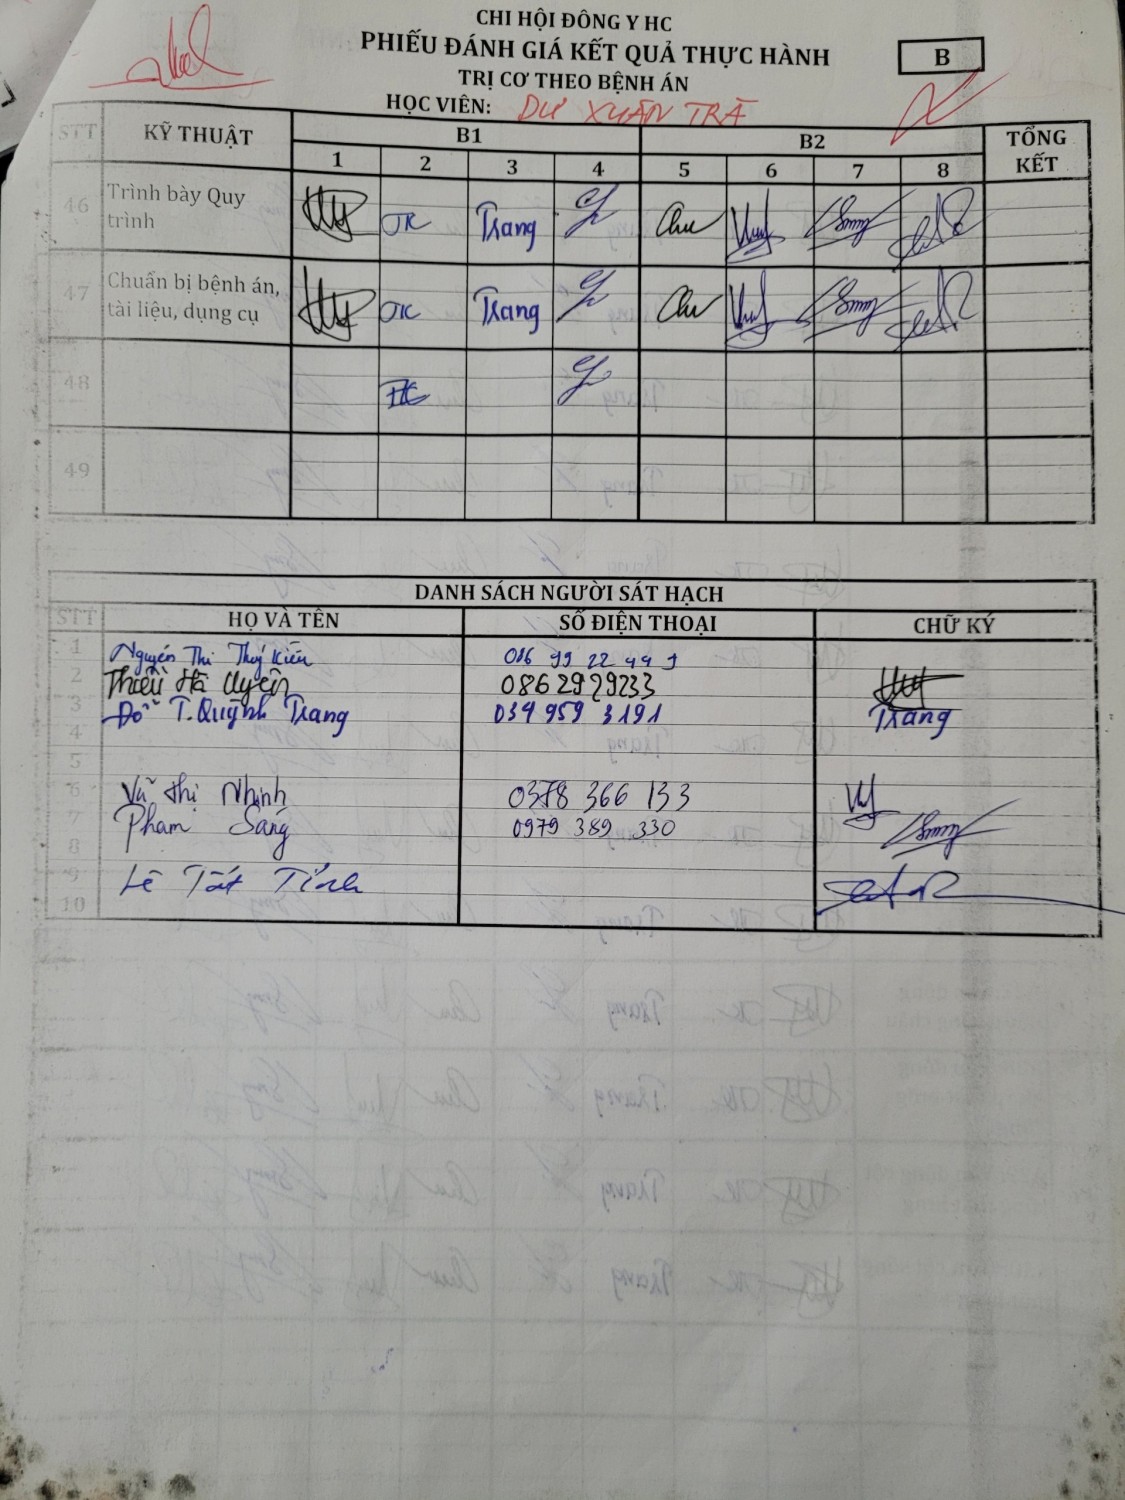 CHI HỘI ĐÔNG Y HC
PHIẾU ĐÁNH GIÁ KẾT QUẢ THỰC HÀNH
B
TRỊ CƠ THEO BỆNH ÁN
HỌC VIÊN: DƯ XUÂN TRÀ
STT KỸ THUẬT B1 B2 TỔNG KẾT
1 2 3 4 5 6 7 8
46 Trình bày Quy trình Trang
47 Chuẩn bị bệnh án, tài liệu, dụng cụ Trang
48
49
DANH SÁCH NGƯỜI SÁT HẠCH
STT HỌ VÀ TÊN SỐ ĐIỆN THOẠI CHỮ KÝ
1 Nguyễn Thị Thuý Kiều 086 99 22 449
2 Thiều Hà Uyên 0862929233
3 Đỗ T. Quỳnh Trang 034 959 3191 Trang
4
5
6 Vũ Thị Nhinh 0378 366 133
7 Pham Sáng 0979 389 330
8
9 Lê Tất Tính
10